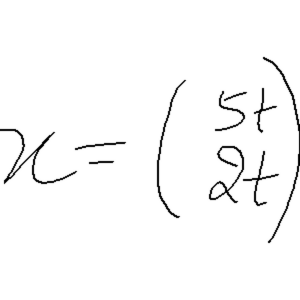 x = (5t
2t)